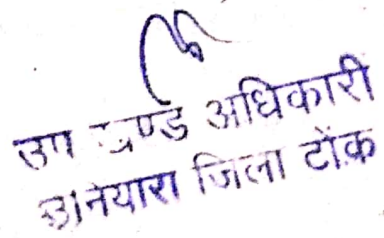 उप खण्ड अधिकारी
उनियारा जिला टोंक